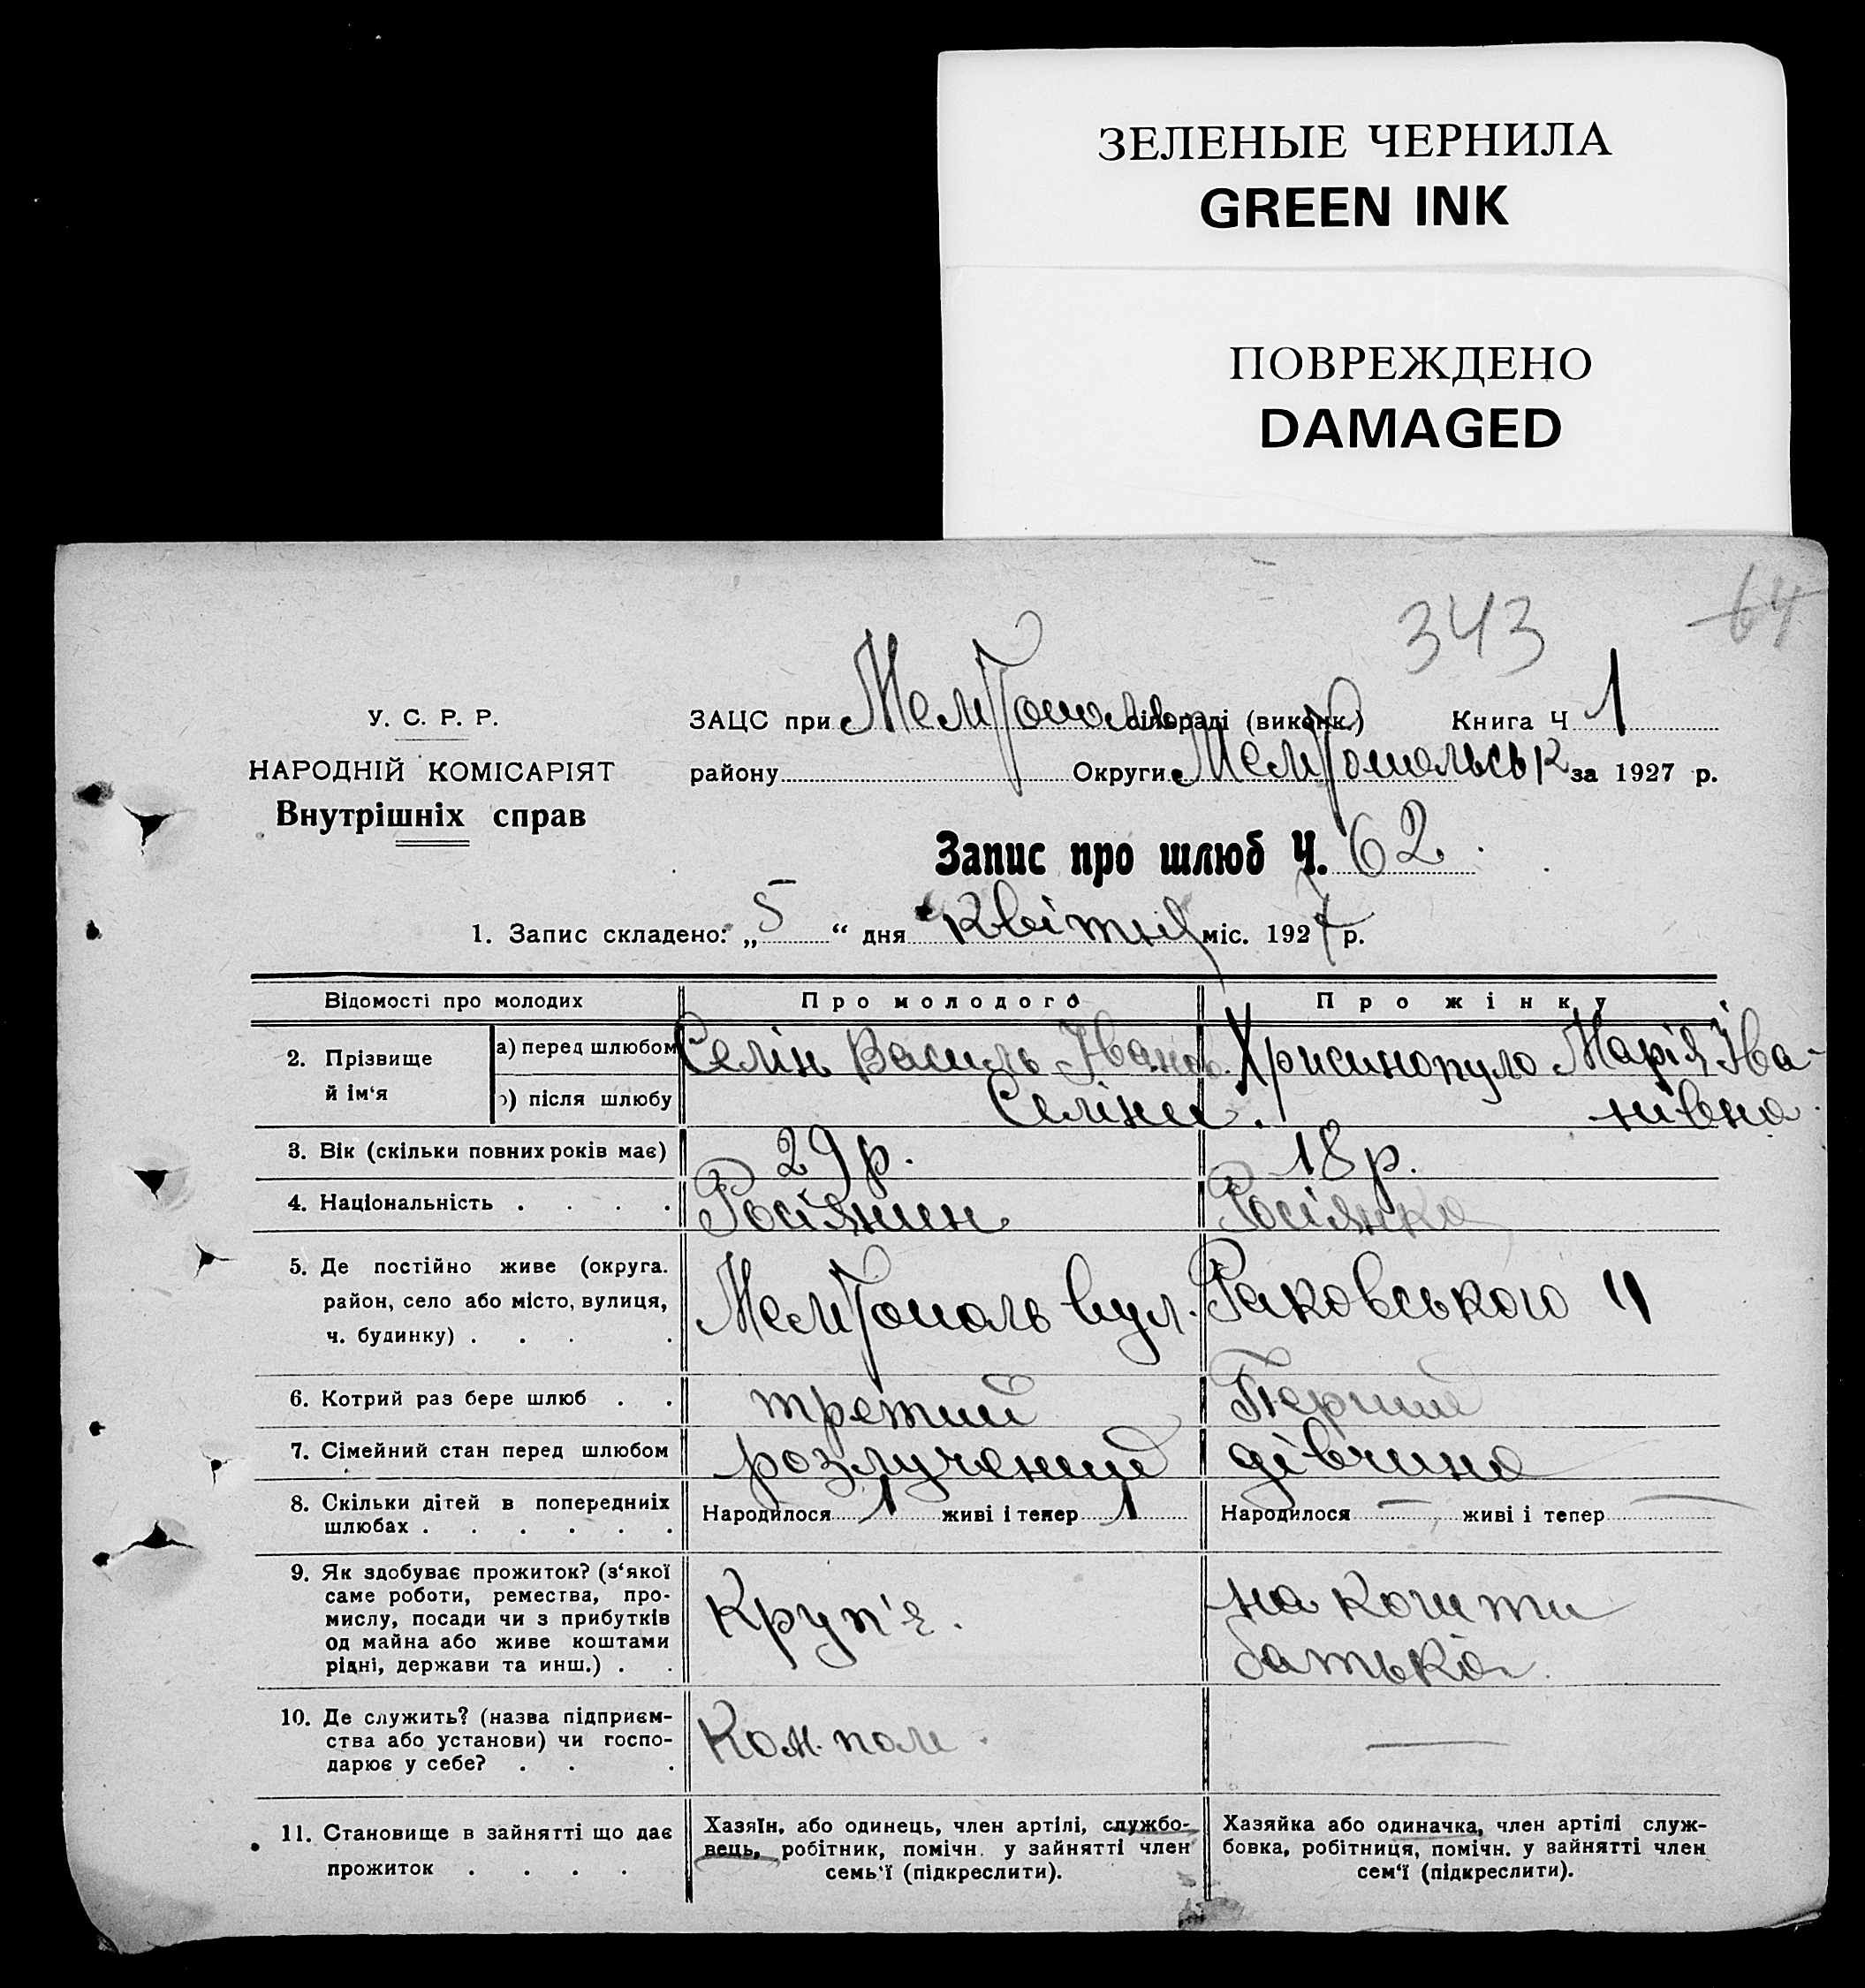 ЗЕЛЕНЫЕ ЧЕРНИЛА
GREEN INK
ПОВРЕЖДЕНО
DAMAGED
343 64
У. С. Р. Р.
НАРОДНІЙ КОМІСАРІЯТ
Внутрішніх справ
ЗАЦС при Мелітополь сільраді (виконк.) Книга Ч 1
району Округи Мелітопольськ за 1927 р.
Запис про шлюб Ч. 62
1. Запис складено: „5“ дня Квітня міс. 1927 р.
Відомості про молодих Про молодого Про жінку
2. Прізвище й ім‘я
а) перед шлюбом Селін Василь Іванов. Хрисинопуло Марія Іва-
нівна
б) після шлюбу Селіни.
3. Вік (скільки повних років має) 29 р. 18 р.
4. Національність . . . . Росіянин Росіянка
5. Де постійно живе (округа.
район, село або місто, вулиця,
ч. будинку) . . . . Мелітополь вул. Раковського 11
6. Котрий раз бере шлюб . . третий Перший
7. Сімейний стан перед шлюбом розлучений дівчина
8. Скільки дітей в попередниіх
шлюбах . . . . . . Народилося 1 живі і тепер 1 Народилося — живі і тепер —
9. Як здобуває прожиток? (з‘якої
саме роботи, ремества, про-
мислу, посади чи з прибутків
од майна або живе коштами
рідні, держави та инш.) . . Круп'є. на кошти
батька.
10. Де служить? (назва підприєм-
ства або установи) чи госпо-
дарює у себе? . . . Ком. пом. —
11. Становище в зайнятті що дає
прожиток . . . .
Хазяїн, або одинець, член артілі, службо-
вець, робітник, помічн. у зайнятті член
семь‘ї (підкреслити).
Хазяйка або одиначка, член артілі служ-
бовка, робітниця, помічн. у зайнятті член
сем‘ї (підкреслити).